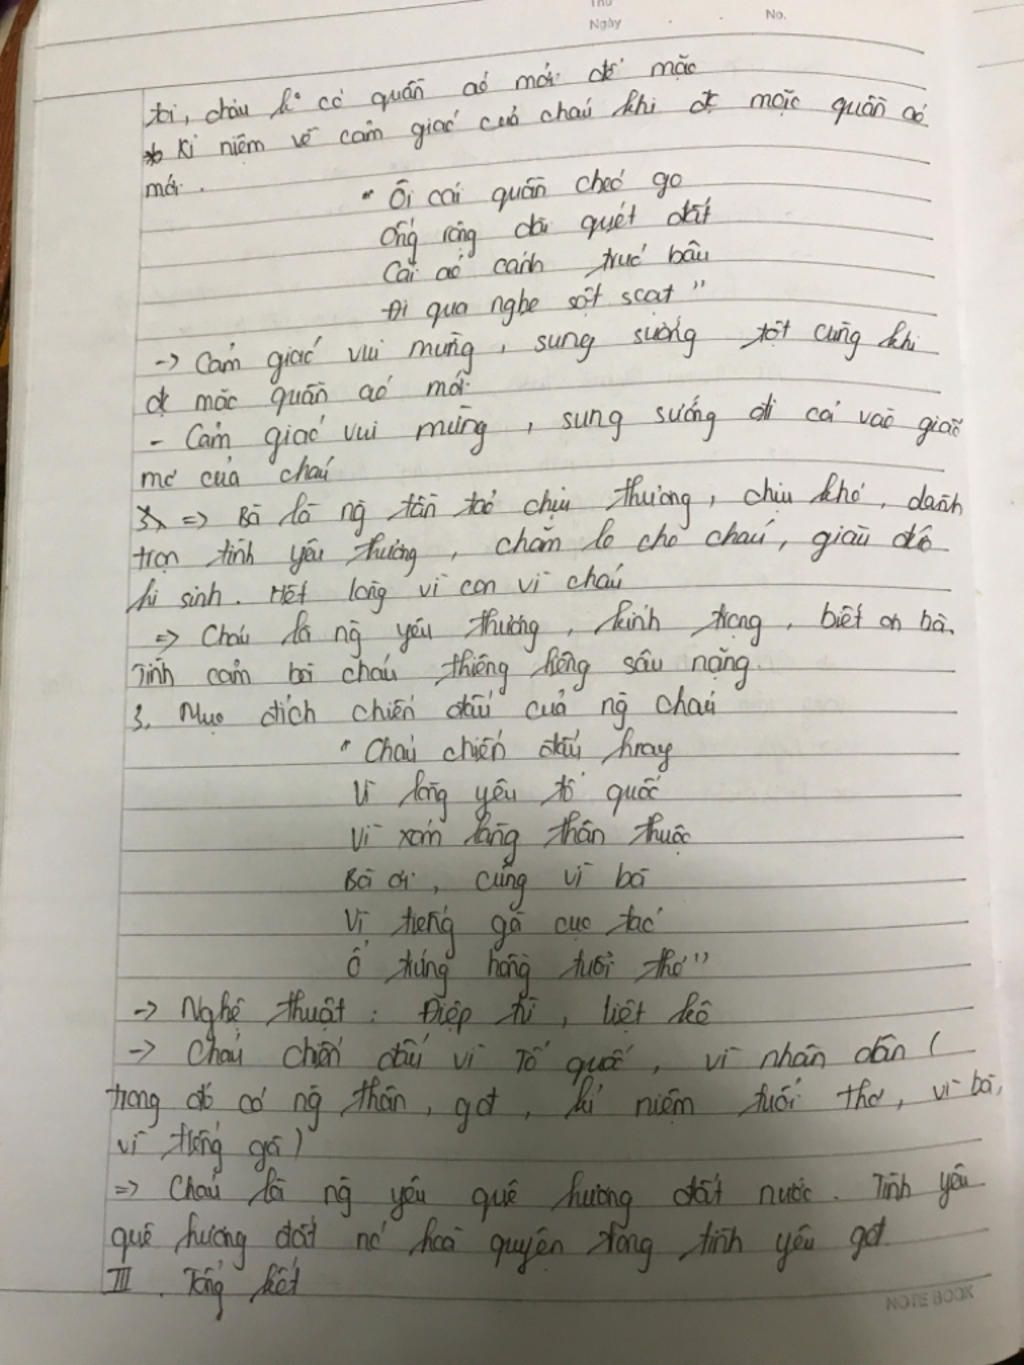 Thứ
Ngày . . No.
tôi, cháu k° có quần áó mới để mặc
* Kỉ niệm về cảm giác của cháu khi đc mặc quần áó
mới.
" Ôi cái quần chéó go
Ống rộng dài quét đất
Cái áó cánh trúc bâu
Đi qua nghe sột soạt "
-> Cảm giác vui mừng, sung sướng tột cùng khi
đc mặc quần áó mới
- Cảm giác vui mừng, sung sướng đi cả vào giấc
mơ của cháu
=> Bà là ng tần tảo chịu thương, chịu khó, dành
trọn tình yêu thương, chăm lo cho cháu, giàu đức
hi sinh. Hết lòng vì con vì cháu
=> Cháu là ng yêu thương, kính trọng, biết ơn bà.
Tình cảm bà cháu thiêng liêng sâu nặng.
3. Mục đích chiến đấu của ng cháu
" Cháu chiến đấu hnay
Vì lòng yêu tổ quốc
Vì xóm làng thân thuộc
Bà ơi, cũng vì bà
Vì tiếng gà cục tác
Ổ trứng hồng tuổi thơ"
-> Nghệ thuật: Điệp từ, liệt kê
-> Cháu chiến đấu vì Tổ quốc, vì nhân dân (
trong đó có ng thân, gđ, kỉ niệm tuổi thơ, vì bà,
vì tiếng gà)
=> Cháu là ng yêu quê hương đất nước. Tình yêu
quê hương đất nc hoà quyện trong tình yêu gđ.
III. Tổng kết
NOTE BOOK